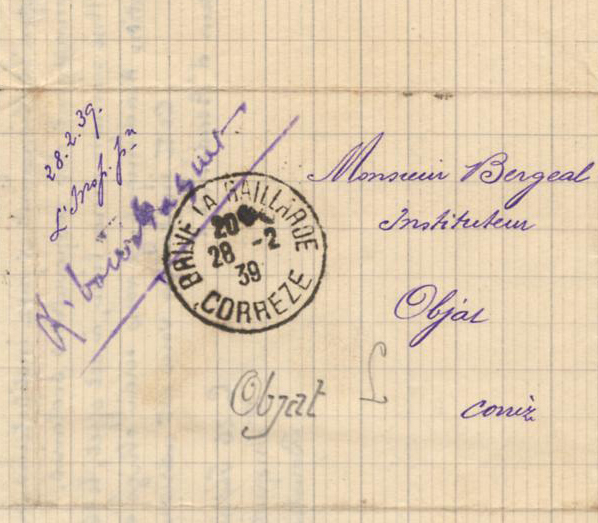 28.2.39.
L'Insp. pʳⁿ
BRIVE LA GAILLARDE
20
28 -2
39
CORREZE
Monsieur Bergeal
Instituteur
Objat
Corrèze
Objat